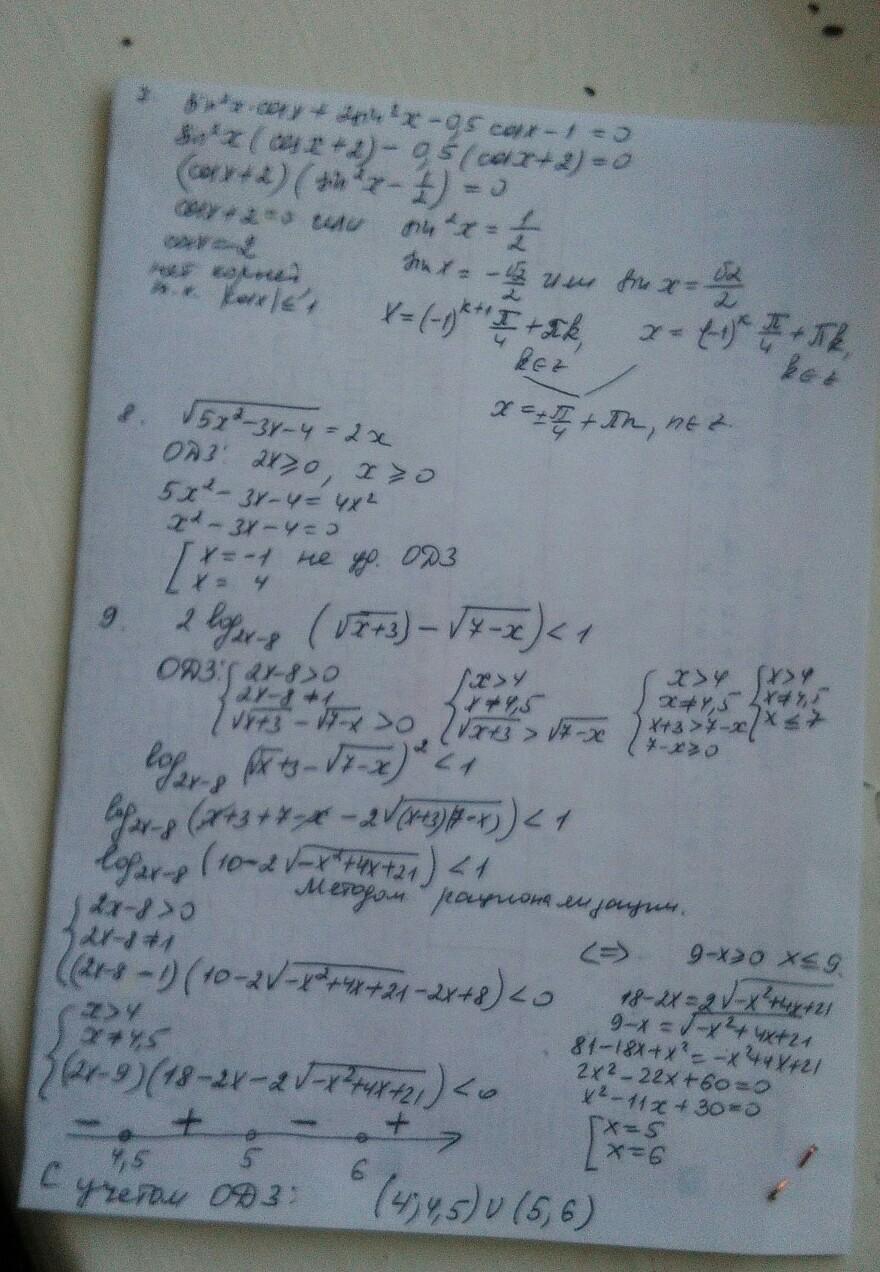 7. sin²x·cosx + 2sin²x - 0,5 cosx - 1 = 0
sin²x (cosx + 2) - 0,5 (cosx + 2) = 0
(cosx + 2) (sin²x - 1/2) = 0
cosx + 2 = 0 или sin²x = 1/2
cosx = -2
нет корней
т.к. |cosx| ≤ 1
sinx = -√2/2 или sinx = √2/2
x = (-1)^(k+1) π/4 + πk, k ∈ z
x = (-1)^k π/4 + πk, k ∈ z
x = ±π/4 + πn, n ∈ z.
8. √(5x² - 3x - 4) = 2x
ОДЗ: 2x ≥ 0, x ≥ 0
5x² - 3x - 4 = 4x²
x² - 3x - 4 = 0
[ x = -1 не уд. ОДЗ
x = 4
9. 2 log_(2x-8) (√(x+3) - √(7-x)) < 1
ОДЗ: { 2x-8 > 0
2x-8 ≠ 1
√(x+3) - √(7-x) > 0
{ x > 4
x ≠ 4,5
√(x+3) > √(7-x)
{ x > 4
x ≠ 4,5
x+3 > 7-x
7-x ≥ 0
{ x > 4
x ≠ 4,5
x ≤ 7
log_(2x-8) (√x+3 - √(7-x))² < 1
log_(2x-8) (x+3+7-x - 2√((x+3)(7-x))) < 1
log_(2x-8) (10 - 2√(-x²+4x+21)) < 1
Методом рационализации.
{ 2x-8 > 0
2x-8 ≠ 1
(2x-8-1)(10 - 2√(-x²+4x+21) - 2x+8) < 0
{ x > 4
x ≠ 4,5
(2x-9)(18-2x-2√(-x²+4x+21)) < 0
<=> 9-x ≥ 0 x ≤ 9.
18-2x = 2√(-x²+4x+21)
9-x = √(-x²+4x+21)
81-18x+x² = -x²+4x+21
2x²-22x+60=0
x²-11x+30=0
[ x=5
x=6
- + - +
4,5 5 6
С учетом ОДЗ: (4; 4,5) ∪ (5, 6)